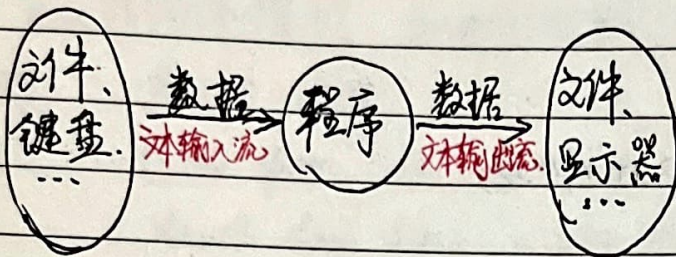 文件、
键盘.
...
数据
文本输入流
程序
数据
文本输出流.
文件、
显示器
...